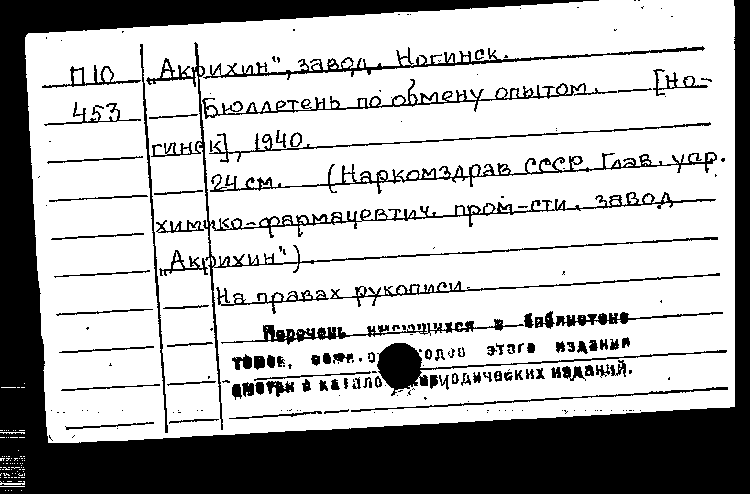 П10 „Акрихин", завод. Ногинск.
453 Бюллетень по обмену опытом. [Но-
гинск], 1940.
24 см. (Наркомздрав СССР. Глав. упр.
химико-фармацевтич. пром-сти. завод
„Акрихин").
На правах рукописи.
Перечень имеющихся в библиотеке
томов, этого издания
смотри в периодических изданий.